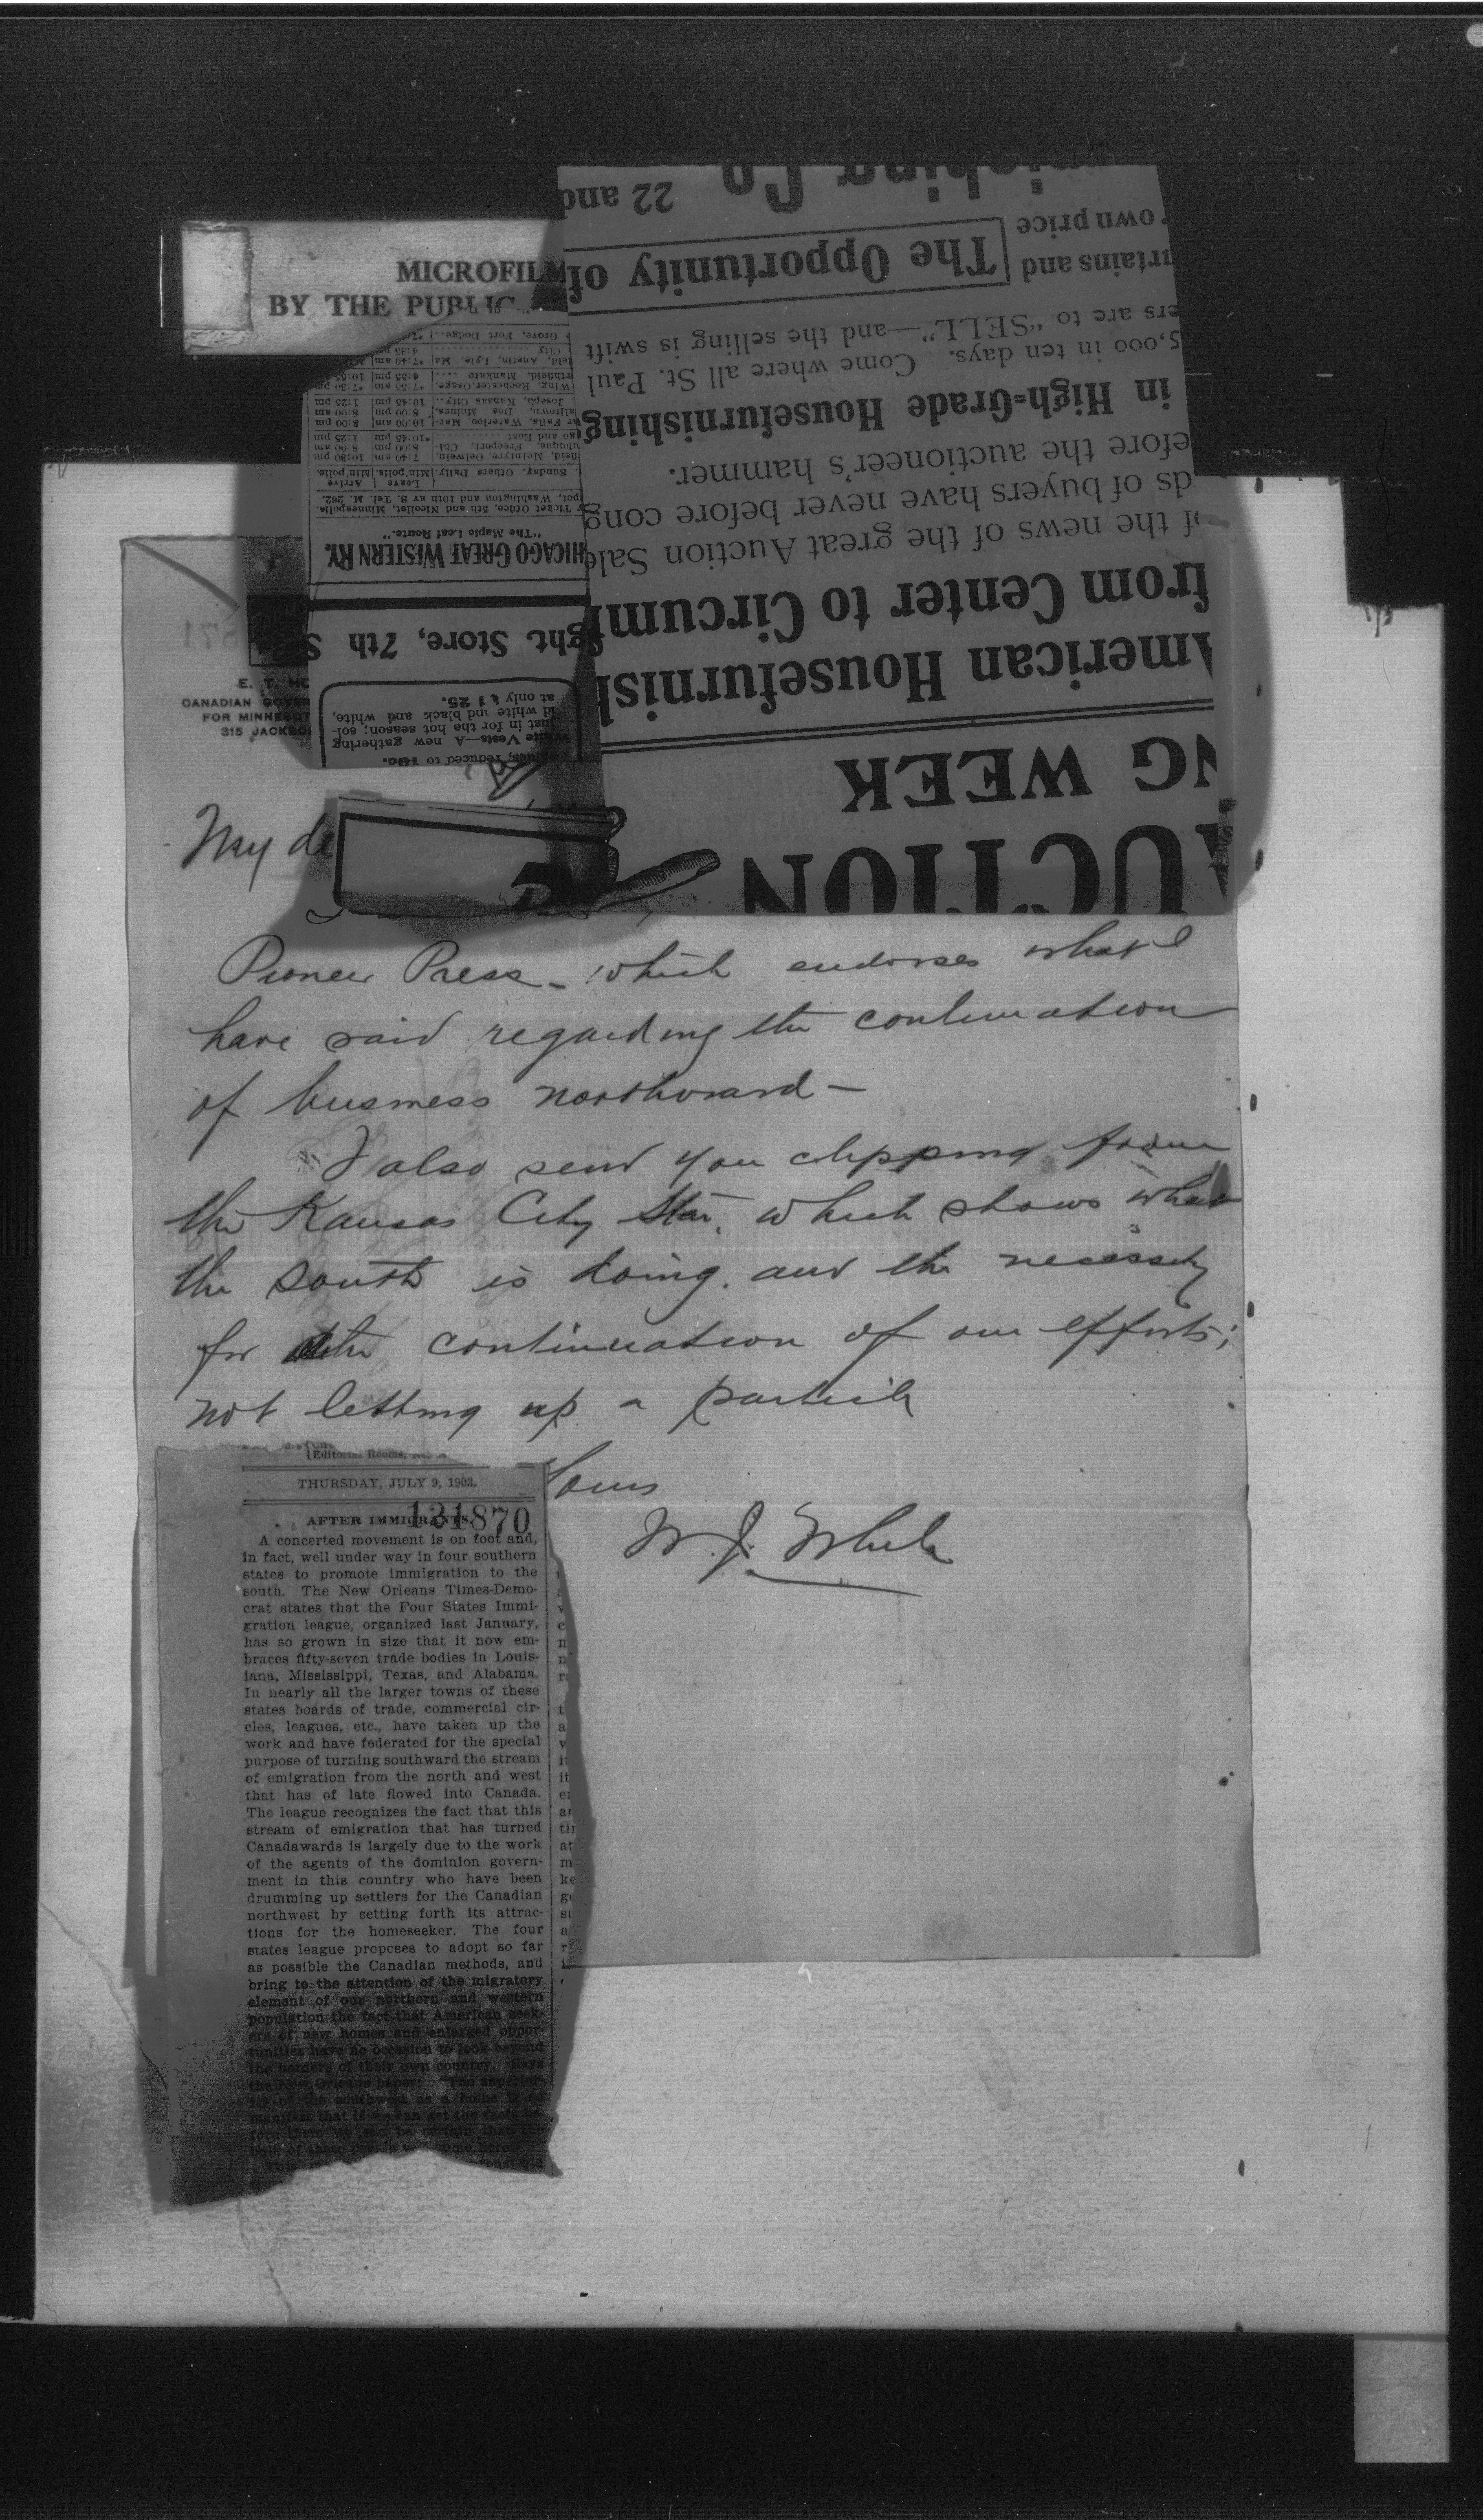 MICROFILM
BY THE PUBLIC
nishing Co
22 and
The Opportunity of
own price
rtains and
ers are to "SELL"—and the selling is swift
5,000 in ten days. Come where all St. Paul
in High-Grade Housefurnishing
efore the auctioneer's hammer.
ds of buyers have never before cong
f the news of the great Auction Sale
from Center to Circumf
American Housefurnish
NG WEEK
AUCTION
Grove, Fort Dodge..
City
4:35 pm
eld, Austin, Lyle, Ma
7:40 am
rthfield, Mankato ....
4:55 pm
10:55
Wing, Rochester, Osage,
*7:55 am
*7:30 pm
Joseph, Kansas City..
10:45 pm
1:25 pm
alltown, Des Moines,
8:00 pm
8:00 am
ar Falls, Waterloo, Mar-
10:00 am
8:00 pm
go and East
*10:45 pm
1:25 pm
ubuque, Freeport, Chi-
8:00 pm
8:00 am
field, McIntyre, Oelwein,
7:40 am
10:30 pm
Sunday. Others Daily.
Leave
Min'polis
Arrive
Min'polis.
y Ticket Office, 5th and Nicollet, Minneapolis.
pot, Washington and 10th av S. Tel. M. 262.
"The Maple Leaf Route."
HICAGO GREAT WESTERN RY.
ght. Store, 7th S
at only $1 25.
id white and black and white,
just in for the hot season; sol-
White Vests—A new gathering
values, reduced to 19c.
E. T. HO
CANADIAN GOVER
FOR MINNESOT
315 JACKSO
My de
Pioneer Press – which endorses what I
have said regarding the continuation
of business northward –
I also send you clipping from
the Kansas City Star, which shows what
the south is doing, and the necessity
for the continuation of our efforts;
not letting up a particle
Yours
W. J. White
Editorial Rooms,
THURSDAY, JULY 9, 1903.
121870
AFTER IMMIGRANTS.
A concerted movement is on foot and,
in fact, well under way in four southern
states to promote immigration to the
south. The New Orleans Times-Demo-
crat states that the Four States Immi-
gration league, organized last January,
has so grown in size that it now em-
braces fifty-seven trade bodies in Louis-
iana, Mississippi, Texas, and Alabama.
In nearly all the larger towns of these
states boards of trade, commercial cir-
cles, leagues, etc., have taken up the
work and have federated for the special
purpose of turning southward the stream
of emigration from the north and west
that has of late flowed into Canada.
The league recognizes the fact that this
stream of emigration that has turned
Canadawards is largely due to the work
of the agents of the dominion govern-
ment in this country who have been
drumming up settlers for the Canadian
northwest by setting forth its attrac-
tions for the homeseeker. The four
states league proposes to adopt so far
as possible the Canadian methods, and
bring to the attention of the migratory
element of our northern and western
population the fact that American seek-
ers of new homes and enlarged oppor-
tunities have no occasion to look beyond
the borders of their own country. Says
the New Orleans paper: "The superior-
ity of the southwest as a home is so
manifest that if we can get the facts be-
fore them we can be certain that the
bulk of these people will come here."
This